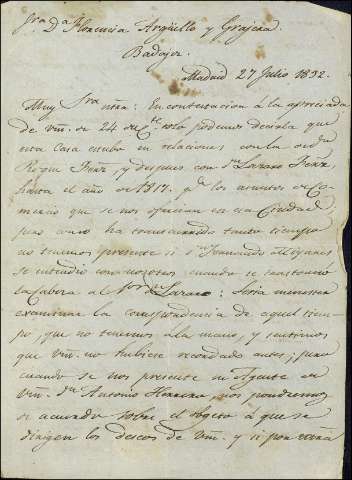 Sra Da Florencia Argüello y Grajera.
Badajoz.
Madrid 27 Julio 1832
Muy Sra nra: En contestacion à la apreciada
de vm. de 24 de Cte solo podemos decirla que
esta Casa estubo en relaciones con la de dn
Roque Fernz, y despues con dn Lazaro Fernz
hasta el año de 1817. pa los asuntos de Co-
mercio que se nos ofrecian en esa Ciudad,
pero como ha transcurrido tanto tiempo
no tenemos presente si dn Fernando
se entendio con nosotros cuando se
la Cabeza al Sor dn Lazaro: Seria menester
examinar la correspondencia de aquel tiem-
po, que no tenemos à la mano, y sentimos
que vm. no hubiese recordado antes; pero
cuando se nos presente su Agente en
vm. dn Antonio Herrera, nos pondremos
de acuerdo sobre el objeto à que se
dirigen los deseos de vm. y si por esta